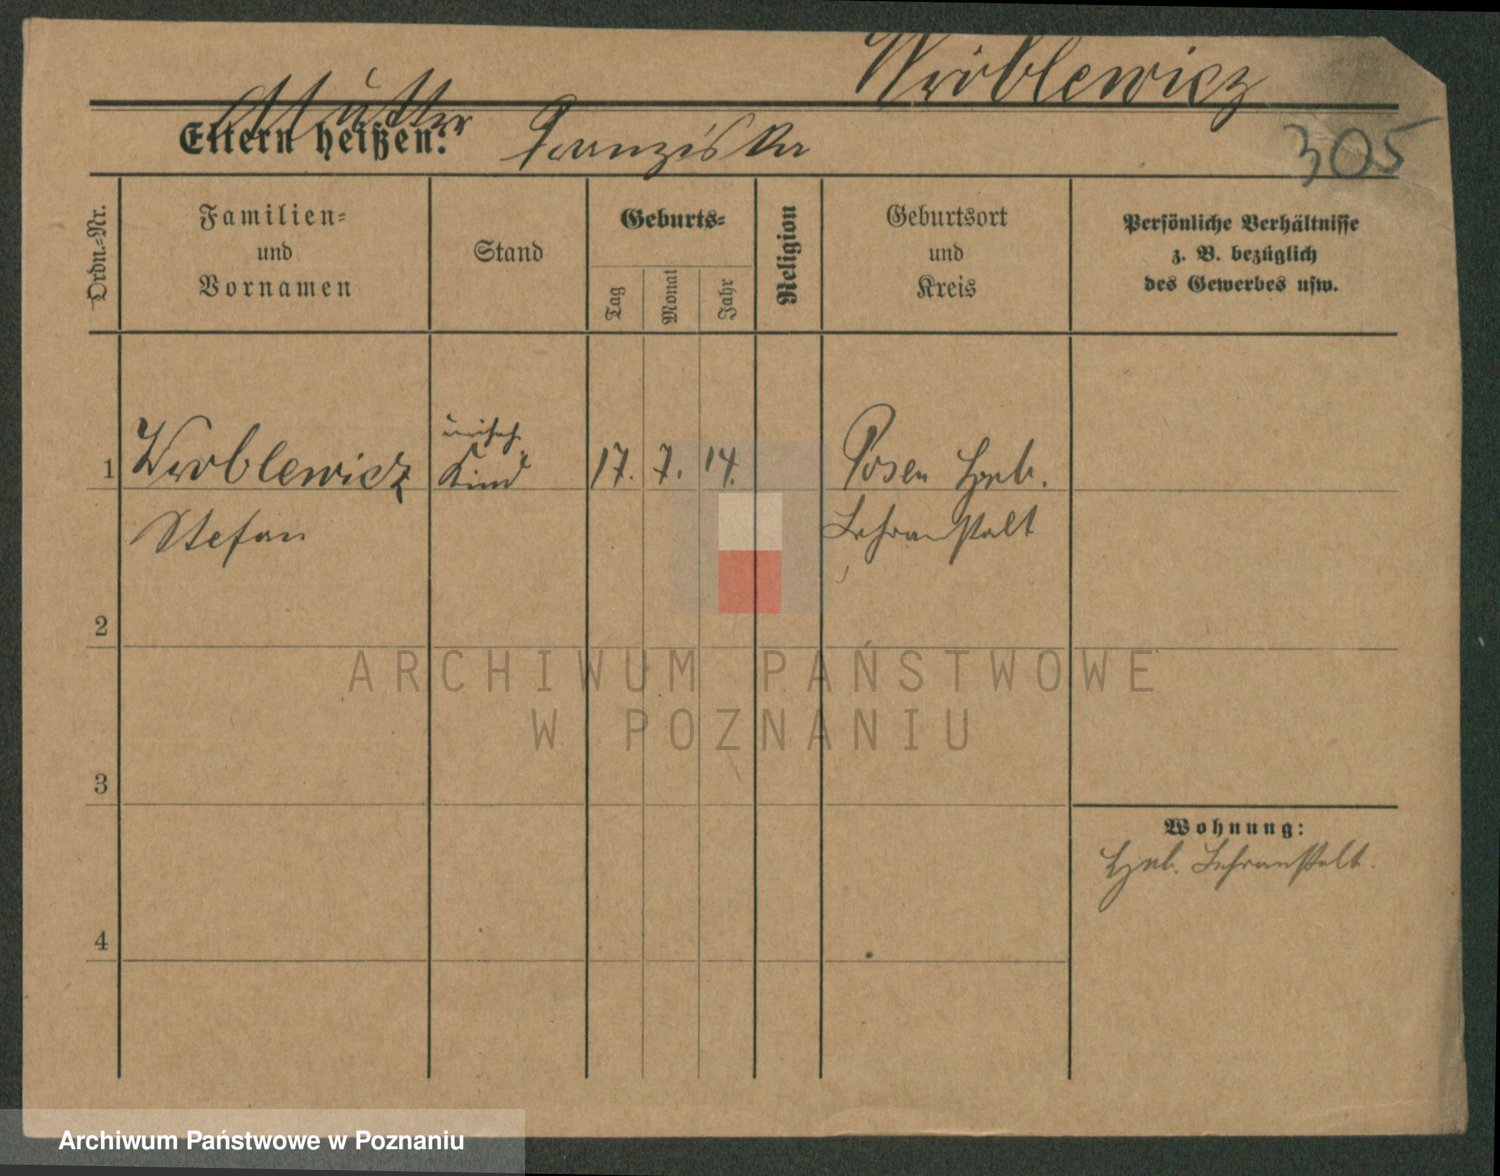 Wróblewicz
Mutter
Eltern heißen: Franziska
305
Ordn.-Nr.
Familien-
und
Vornamen
Stand
Geburts-
Tag
Monat
Jahr
Religion
Geburtsort
und
Kreis
Persönliche Verhältnisse
z. B. bezüglich
des Gewerbes usw.
1 Wroblewicz Kind 17. 7. 14. Posen Heb.
Stefan Lehranstalt
2
3
4
Wohnung:
Heb. Lehranstalt.
ARCHIWUM PAŃSTWOWE
W POZNANIU
Archiwum Państwowe w Poznaniu